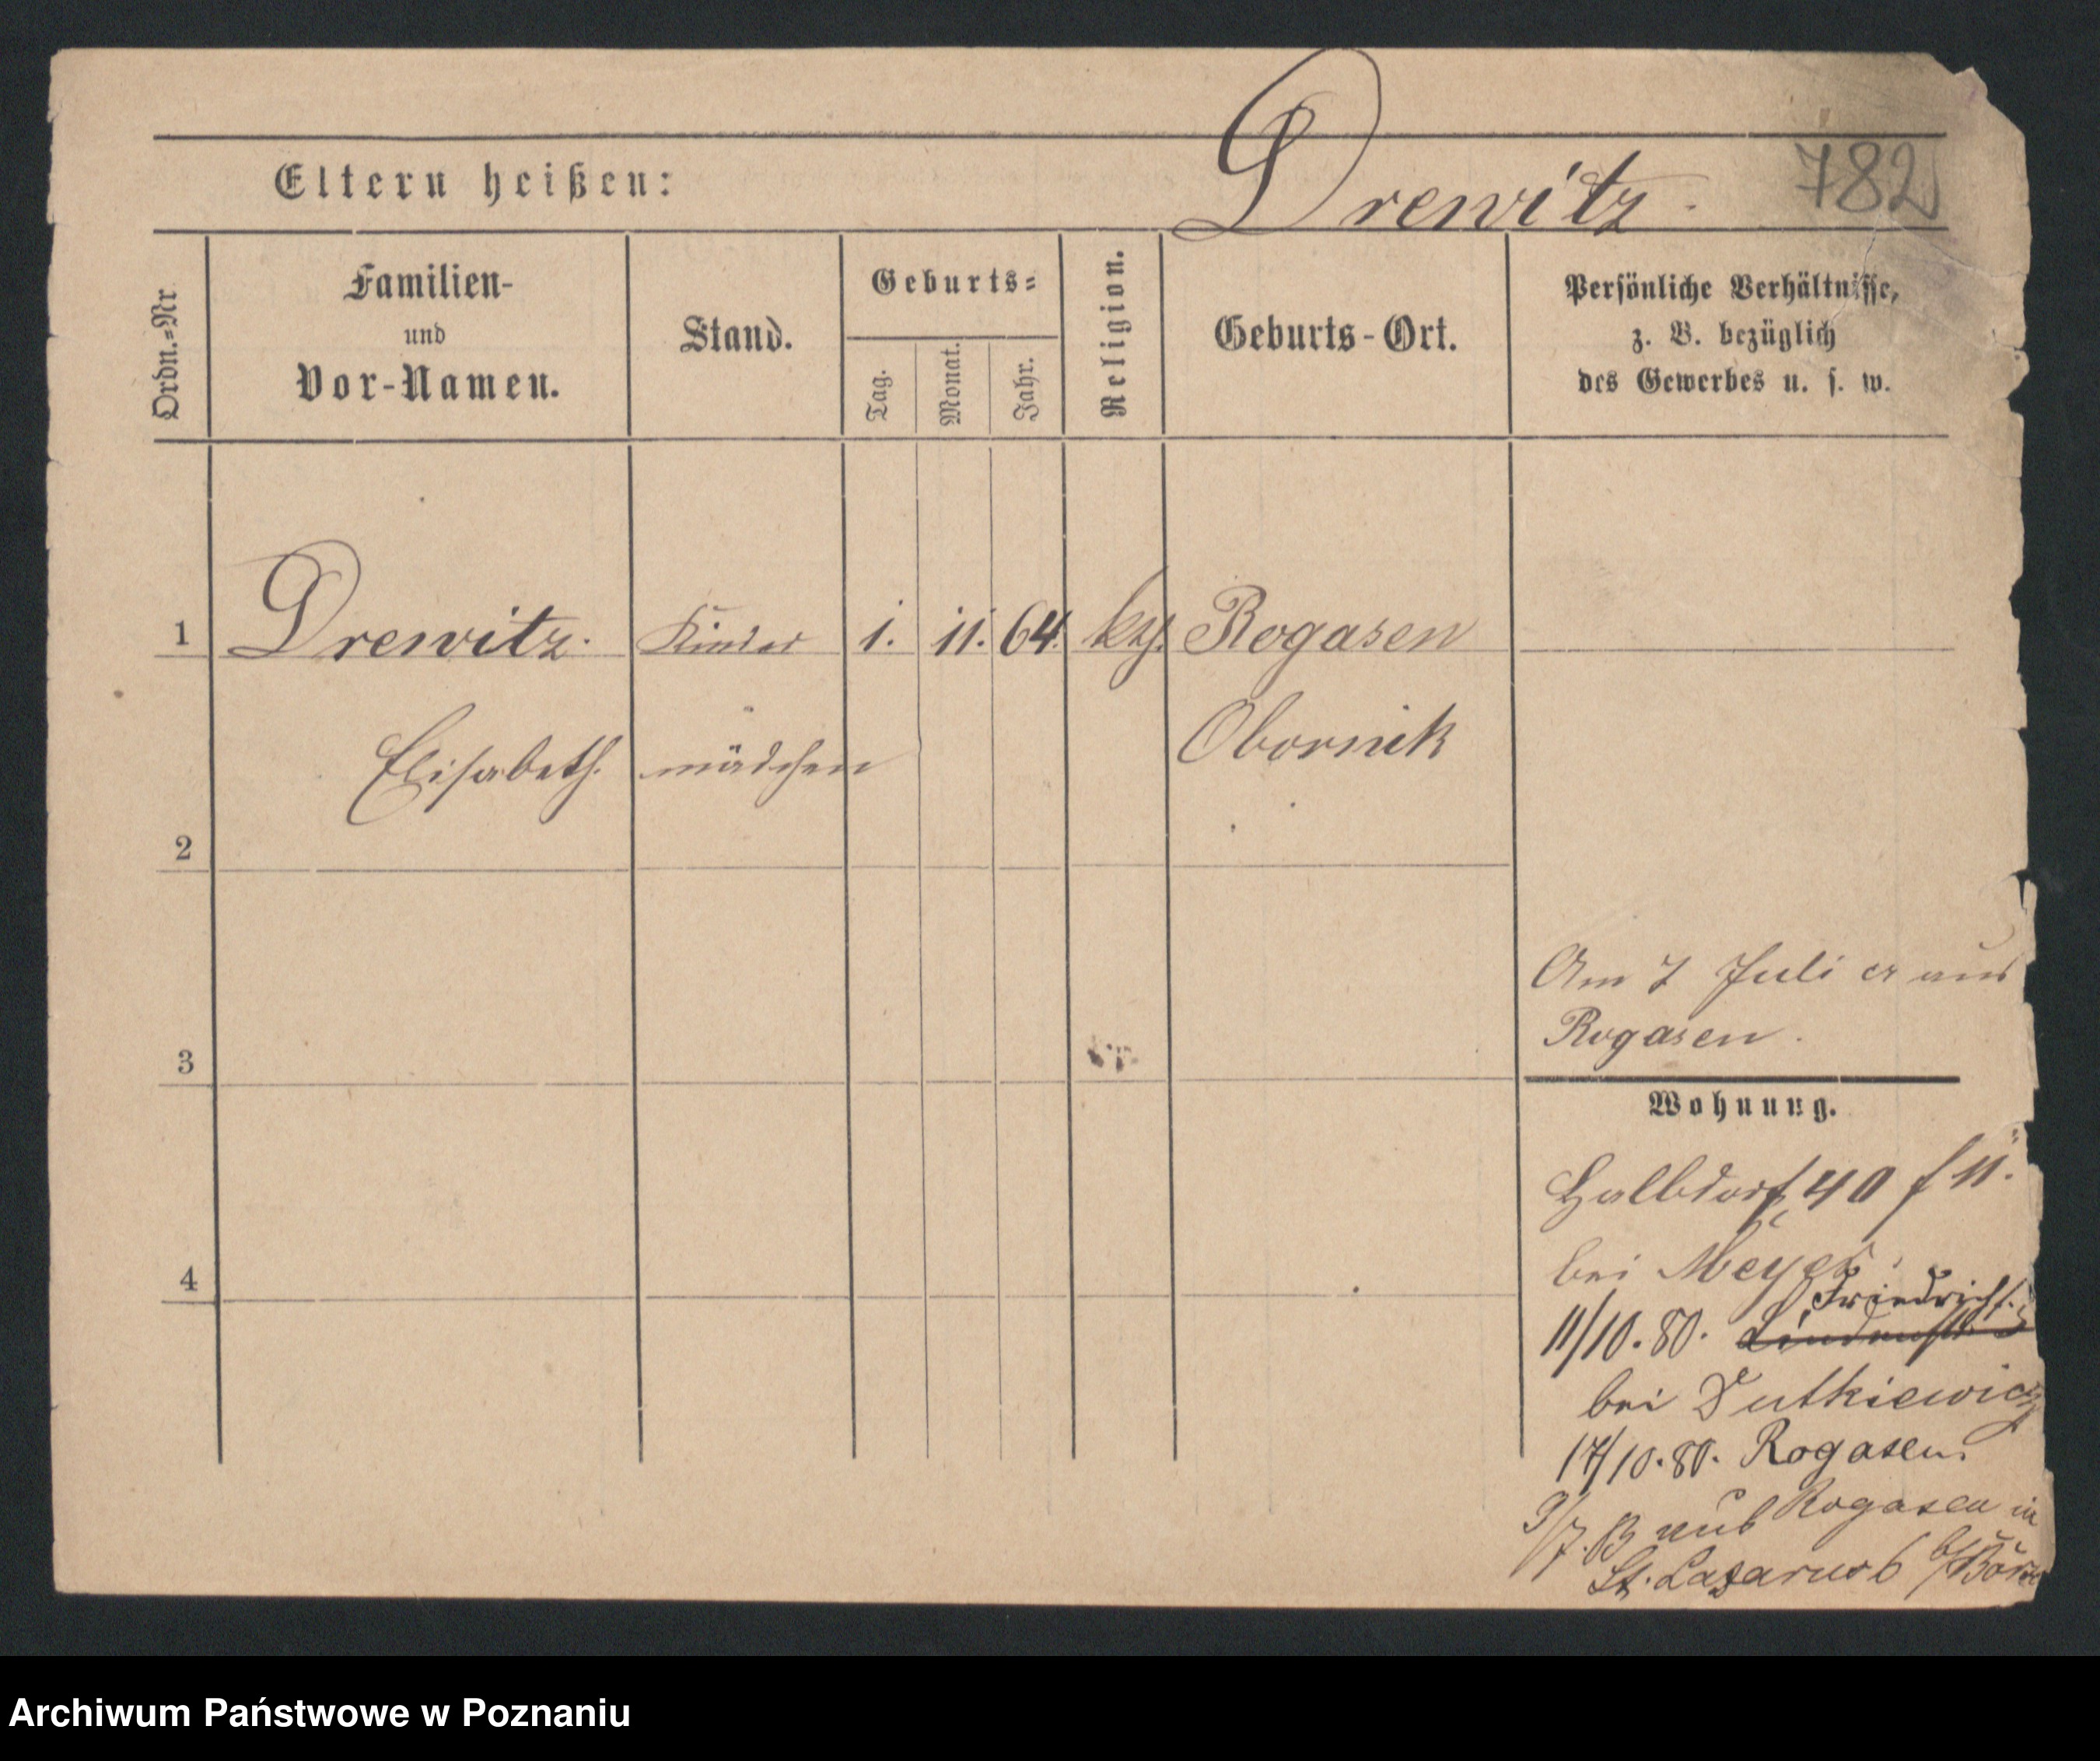 Eltern heißen:
Drewitz.
782
Ordn.=Nr
Familien-
und
Vor-Namen.
Stand.
Geburts=
Tag.
Monat.
Jahr.
Religion.
Geburts-Ort.
Persönliche Verhältnisse,
z. B. bezüglich
des Gewerbes u. s. w.
1 Drewitz. Kinder 1. 11. 64. Rogasen
Elisabeth. mädchen Obornik
2
Am 7 Juli cr aus
Rogasen.
3
Wohnung.
Halbdorf 40
bei Meyer
4
Friedrichs.
11/10. 80. Lindenstr.
bei Dutkiewicz
17/10. 80. Rogasen.
Rogasen in
St. Lazarus 6
Archiwum Państwowe w Poznaniu